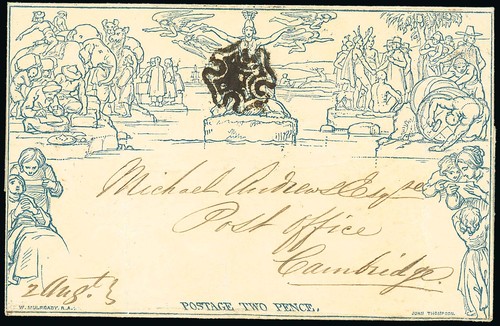 Michael Andrews Esqre
Post Office
Cambridge.
2 Augt
W. MULREADY. R.A.
POSTAGE TWO PENCE.,
JOHN THOMPSON.